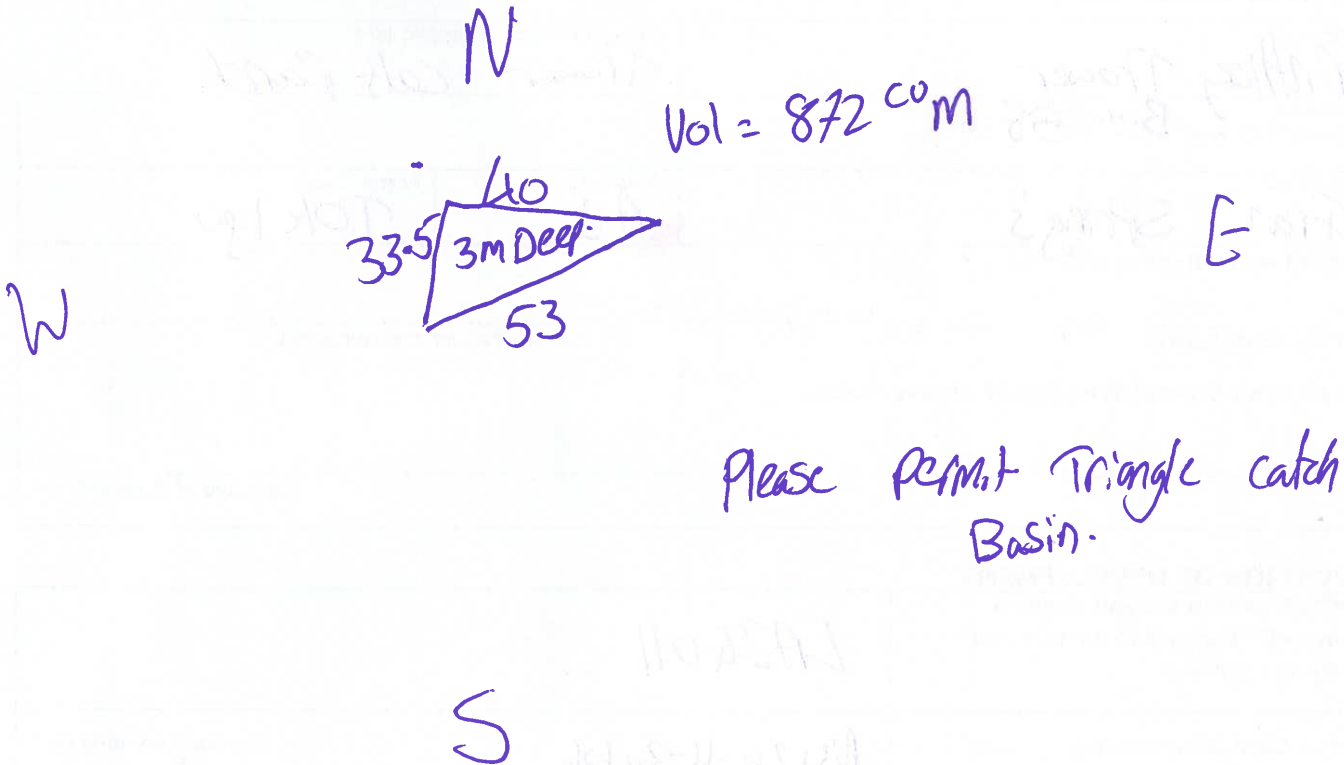 N
Vol = 872 co m
40
33.5
3m Deep.
E
W
53
Please permit Triangle catch
Basin.
S